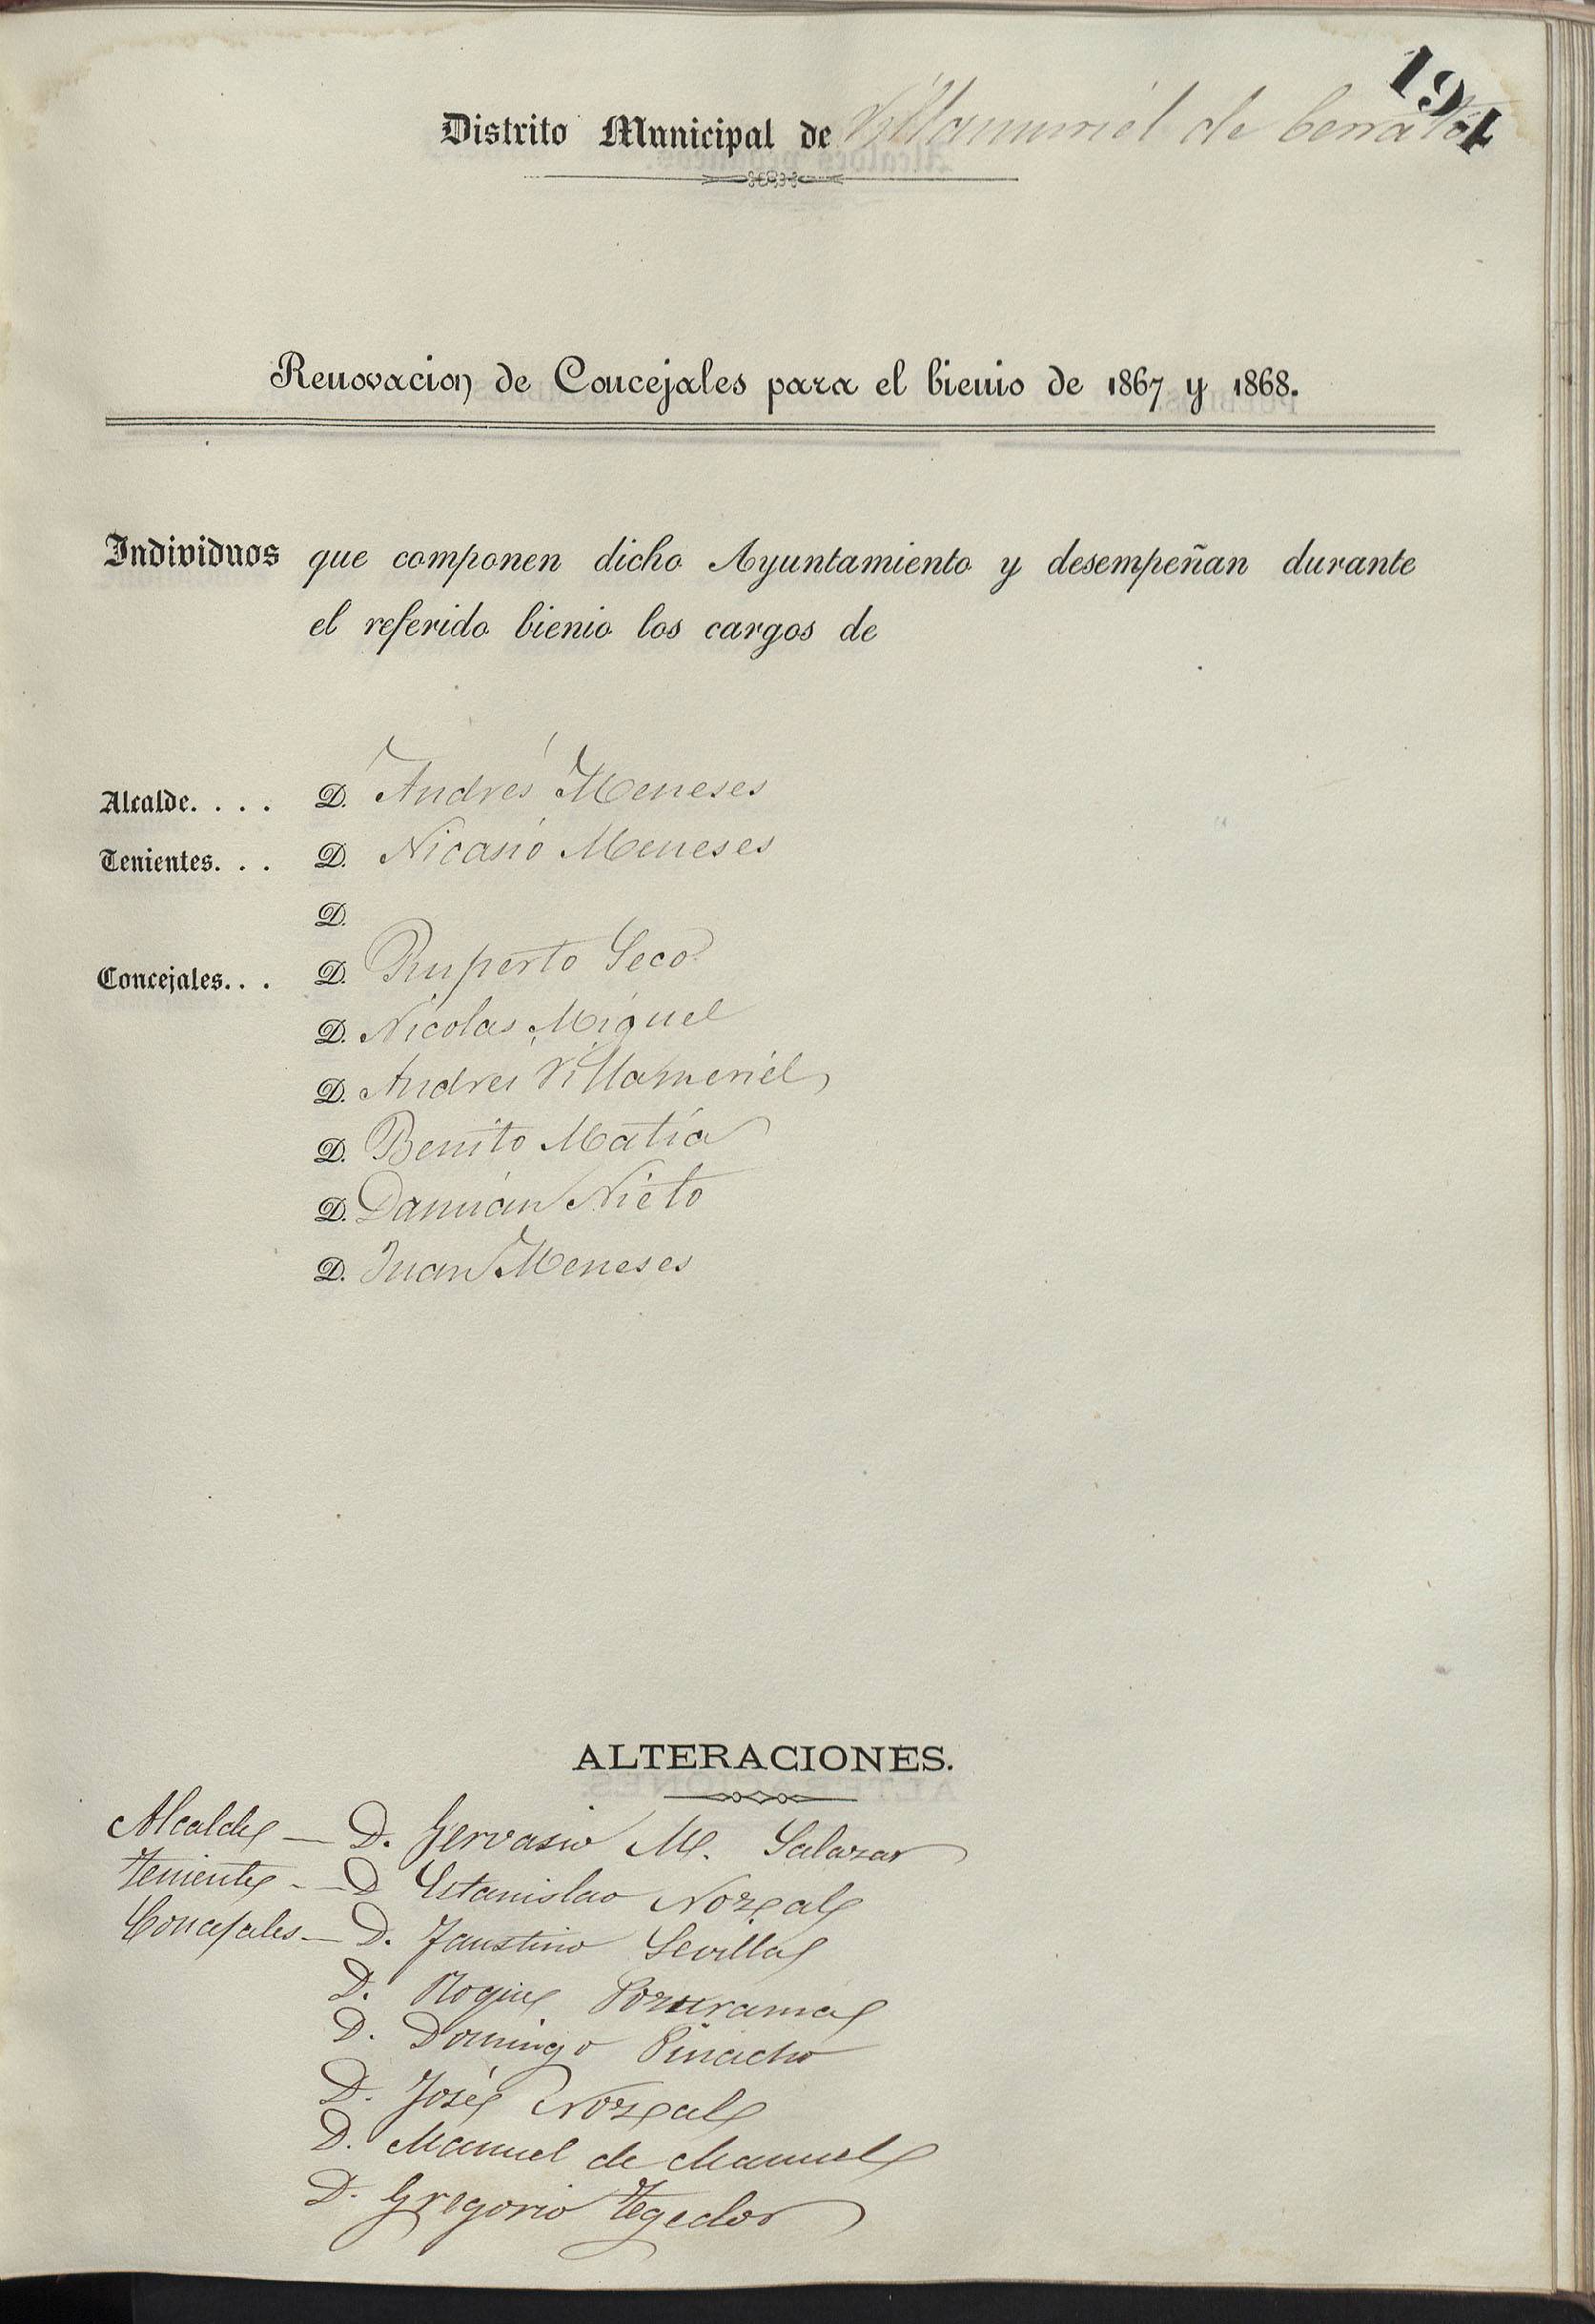 194
Distrito Municipal de Villamuriel de Cerrato
Renovacion de Concejales para el bienio de 1867 y 1868.
Individuos que componen dicho Ayuntamiento y desempeñan durante
el referido bienio los cargos de
Alcalde. . . . D. Andrés Meneses
Tenientes. . . D. Nicasio Meneses
D.
Concejales. . . D. Ruperto Seco
D. Nicolas Miguel
D. Andres Villameriel
D. Benito Matia
D. Damián Nieto
D. Juan Meneses
ALTERACIONES.
Alcalde — D. Gervasio M. Salazar
Teniente - — D Estanislao Nozal
Concejales — D. Faustino Sevilla
D. Roque
D. Domingo Pinacho
D. José Nozal
D. Manuel de Manuel
D. Gregorio Tegedor